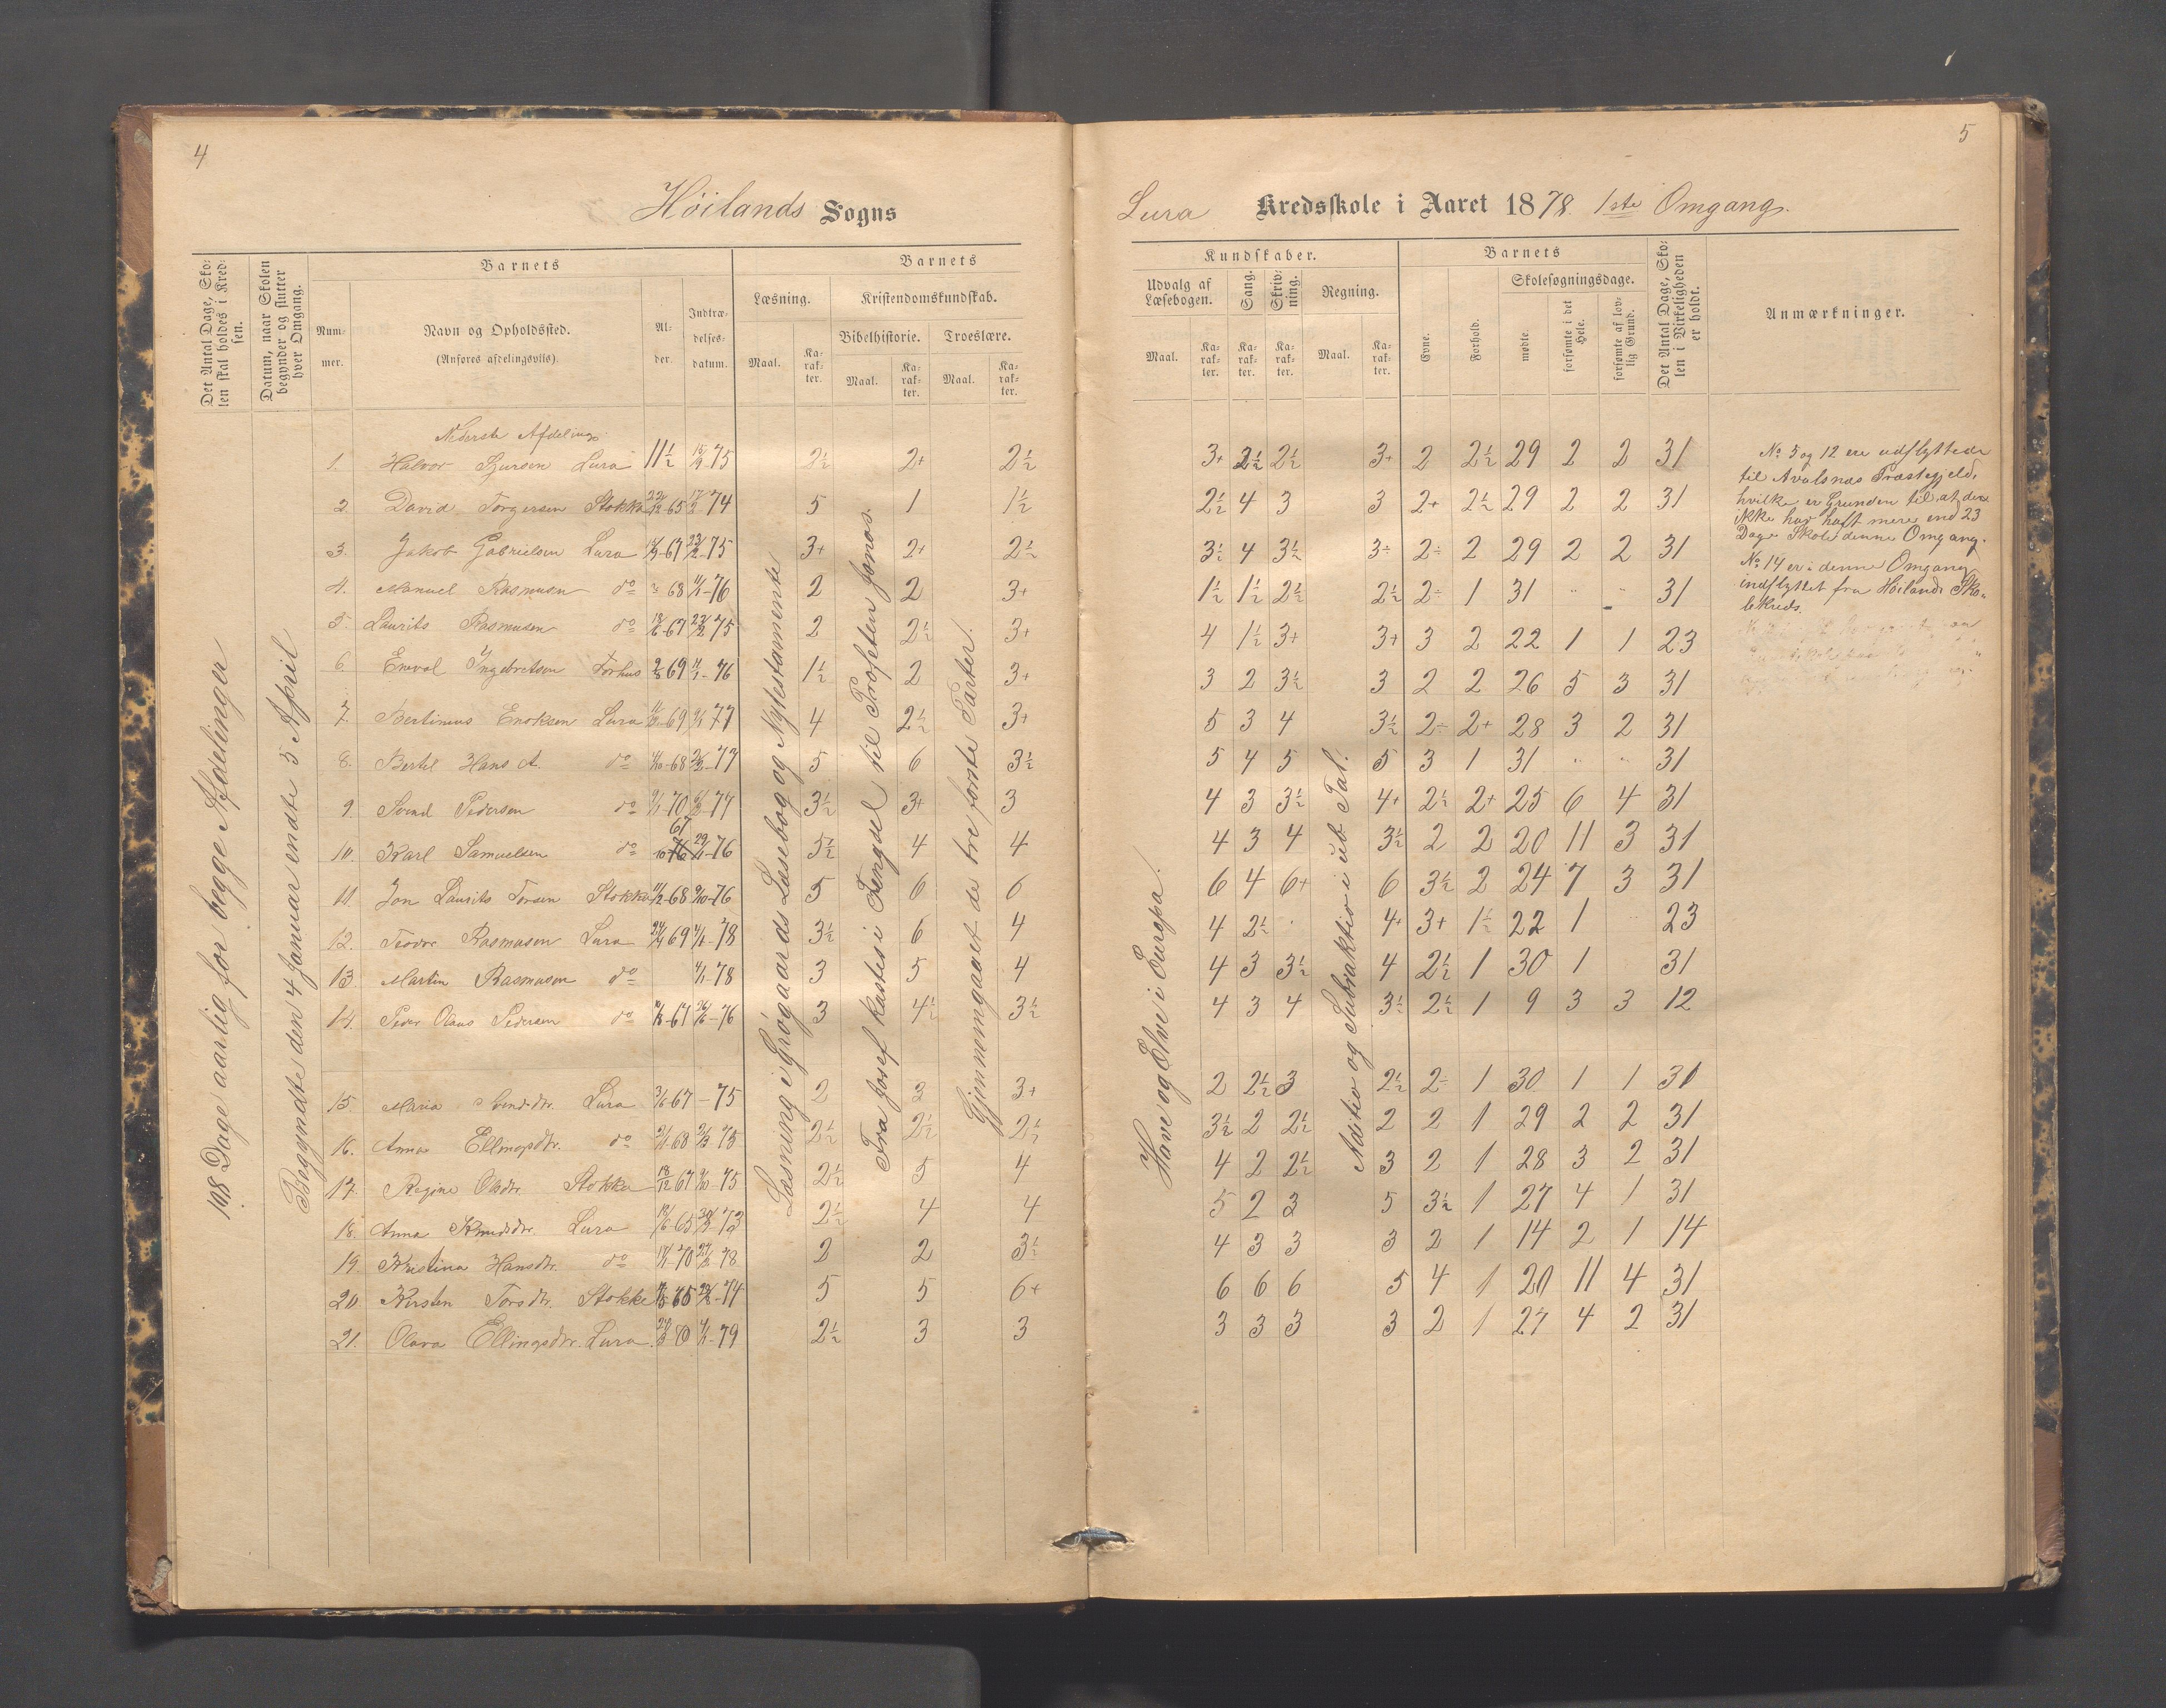 4
Höilands Sogns
Det Antal Dage, Skolen skal holdes i Kredsen.
Datum, naar Skolen begynder og slutter hver Omgang.
Barnets
Nummer.
Navn og Opholdssted.
(Anføres afdelingsviis).
Alder.
Indtrædelsesdatum.
Barnets
Læsning.
Kristendomskundskab.
Bibelhistorie.
Troeslære.
Maal.
Karakter.
Maal.
Karakter.
Maal.
Karakter.
108 Dage aarlig for begge Afdelinger
Begyndte den 4 Januar endte 5 April
Læsning i Grøgaards Læsebog og Nytestamente
Fra Josef kastes i Fengsel til Profeten Jonas.
Gjennemgaaet de tre første Parter.
Nederste Afdeling
1. Halvor Sjursen Lura 11½ 15/9 75 2½ 2+ 2½
2. David Torgersen Stokke 22/12 65 17/2 74 5 1 1½
3. Jakob Gabrielsen Lura 67 23/2 75 3+ 2+ 2½
4. Manuel Rasmusen do 68 4/1-76 2 2 3+
5. Laurits Rasmusen do 18/6-67 23/2 75 2 2½ 3+
6. Enval Ingebretsen Forhus 2/8 69 4/1-76 1½ 2 3+
7. Bertinius Enoksen Lura 69 77 4 2½ 3+
8. Bertel Hans A. do 4/10-68 77 5 6 3½
9. Svend Pedersen do 9/1 70 77 3½ 3+ 3
10. Karl Samuelsen do 67 29/11-76 5½ 4 4
11. Jon Laurits Torsen Stokke 11/2-68 9/10-76 5 6 6
12. Teodor Rasmusen Lura 24/4 69 4/1-78 3½ 6 4
13. Martin Rasmusen do 4/1-78 3 5 4
14. Peder Olaus Pedersen do 67 26/6-76 3 4½ 3½
15. Maria Svendsdtr. Lura 3/6-67 -75 2 2 3+
16. Anna Ellingsdtr. do 2/1 68 75 2½ 2½ 2½
17. Regine Olsdtr. Stokke 18/12 67 9/10-75 2½ 5 4
18. Anna Knudsdtr. Lura 18/6-65 73 2½ 4 4
19. Kristina Hansdtr. do 70 78 2 2 3½
20. Kirsten Torsdtr. Stokke 65 74 5 5 6+
21. Olava Ellingsdtr. Lura. 70 4/1-79 2½ 3 3
5
Lura Kredsskole i Aaret 1878. 1ste Omgang.
Kundskaber.
Udvalg af Læsebogen.
Sang.
Skrivning.
Regning.
Maal.
Karakter.
Karakter.
Karakter.
Maal.
Karakter.
Barnets
Evne.
Forhold.
Skolesøgningsdage.
mødte.
forsømte i det Hele.
forsømte af lovlig Grund.
Det Antal Dage, Skolen i Virkeligheden er holdt.
Anmærkninger.
Have og Elve i Europa.
Aditio og Subtraktio i ub. Tal.
3+ 2½ 2½ 3+ 2 2½ 29 2 2 31
2½ 4 3 3 2+ 2½ 29 2 2 31
3½ 4 3½ 3÷ 2÷ 2 29 2 2 31
1½ 1½ 2½ 2½ 2÷ 1 31 " " 31
4 1½ 3+ 3+ 3 2 22 1 1 23
3 2 3½ 3 2 2 26 5 3 31
5 3 4 3½ 2÷ 2+ 28 3 2 31
5 4 5 5 3 1 31 " " 31
4 3 3½ 4+ 2½ 2+ 25 6 4 31
4 3 4 3½ 2 2 20 11 3 31
6 4 6+ 6 3½ 2 24 7 3 31
4 2½ 4+ 3+ 1½ 22 1 23
4 3 3½ 4 2½ 1 30 1 31
4 3 4 3½ 2½ 1 9 3 3 12
2 2½ 3 2½ 2÷ 1 30 1 1 31
3½ 2 2½ 2 2 1 29 2 2 31
4 2 2½ 3 2 1 28 3 2 31
5 2 3 5 3½ 1 27 4 1 31
4 3 3 3 2 1 14 2 1 14
6 6 6 5 4 1 20 11 4 31
3 3 3 3 2 1 27 4 2 31
No 5 og 12 ere udflyttede
til Avalsnæs Præstegjeld,
hvilke er Grunden til, at den
ikke har haft mere end 23
Dage Skole denne Omgang.
No 14 er i denne Omgang
indflyttet fra Höilands Sko-
lekreds.